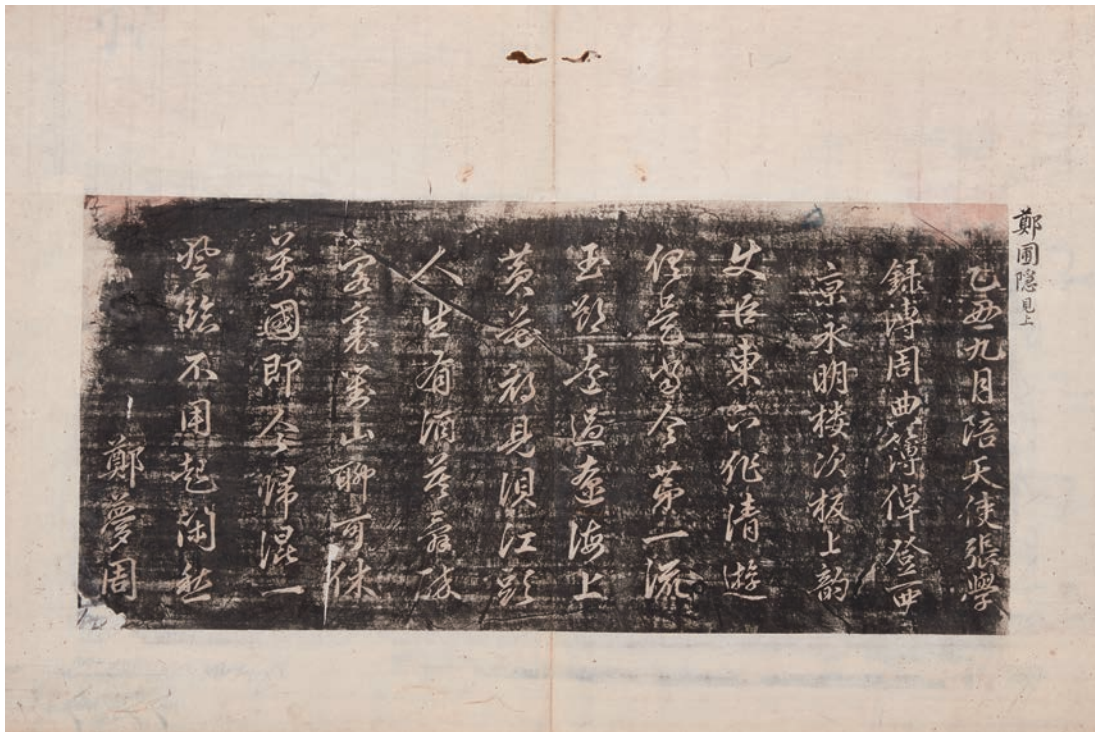 鄭圃隱見上
乙丑九月陪天使張學
錄溥周典簿倬登西
京永明樓次板上韵
臣東作清遊
俱是當今第一流
玉節遠過遼海上
黃花初見浿江頭
人生有酒莫辭醉
客裏看山聊可休
萬國即今歸混一
登臨不用起閑愁
鄭夢周